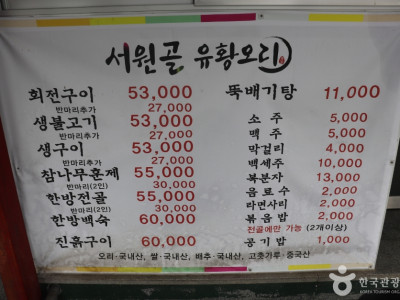 서원골 유황오리
회전구이 53,000
반마리추가 27,000
생불고기 53,000
반마리추가 27,000
생구이 53,000
반마리추가 27,000
참나무훈제 55,000
반마리(2인) 30,000
한방전골 55,000
반마리(2인) 30,000
한방백숙 60,000
진흙구이 60,000
뚝배기탕 11,000
소주 5,000
맥주 5,000
막걸리 4,000
백세주 10,000
복분자 13,000
음료수 2,000
라면사리 2,000
볶음밥 2,000
전골에만 가능 (2개이상)
공기밥 1,000
오리·국내산, 쌀·국내산, 배추·국내산, 고춧가루·중국산
한국관광